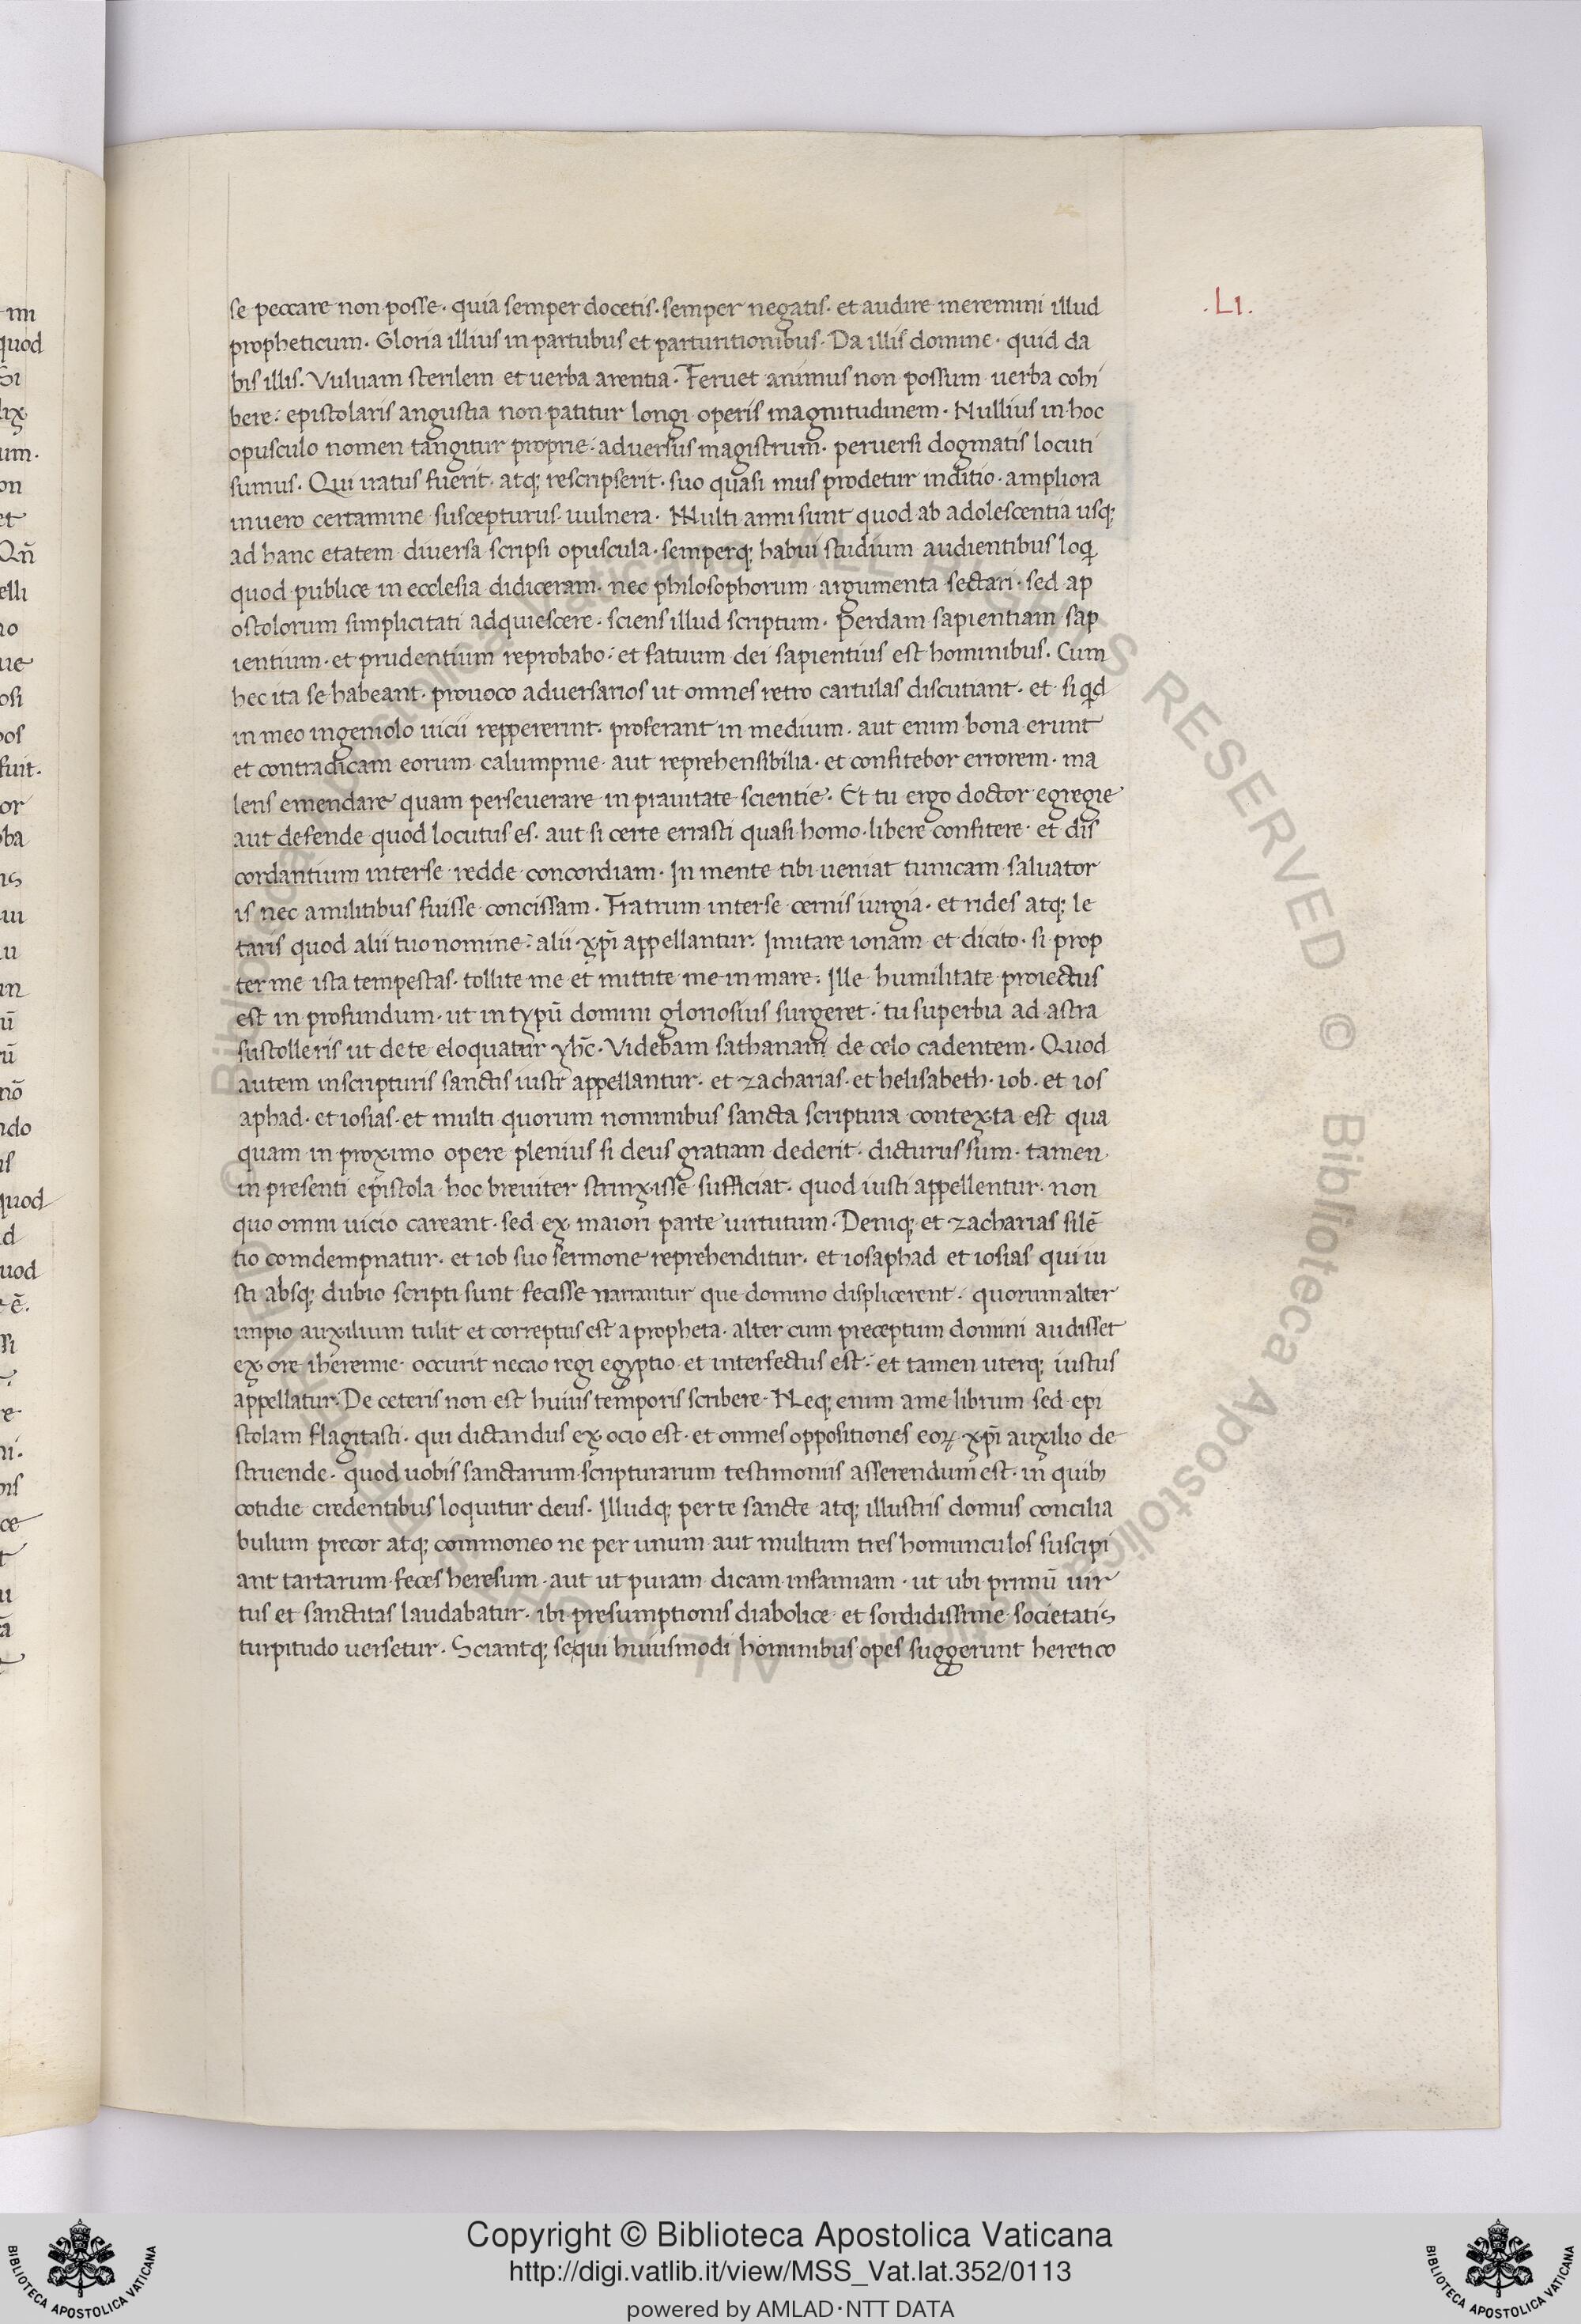 .LI.
se peccare non posse. quia semper docetis. semper negatis. et audire meremini illud
propheticum. Gloria illius in partubus et parturitionibus. Da illis domine. quid da
bis illis. Vuluam sterilem et uerba arentia. Feruet animus non possum uerba cohi
bere: epistolaris angustia non patitur longi operis magnitudinem. Nullius in hoc
opusculo nomen tangitur proprie. aduersus magistrum. peruersi dogmatis locuti
sumus. Qui iratus fuerit. atq; rescripserit. suo quasi mus prodetur inditio. ampliora
in uero certamine suscepturus uulnera. Multi anni sunt quod ab adolescentia usq;
ad hanc etatem diuersa scripsi opuscula. semperq; habui studium audientibus loq
quod publice in ecclesia didiceram. nec philosophorum argumenta sectari. sed ap
ostolorum simplicitati adquiescere. sciens illud scriptum. Perdam sapientiam sap
ientium. et prudentium reprobabo: et fatuum dei sapientius est hominibus. Cum
hec ita se habeant. prouoco aduersarios ut omnes retro cartulas discutiant. et si qd
in meo ingeniolo uicii reppererint. proferant in medium. aut enim bona erunt
et contradicam eorum calumpnie. aut reprehensibilia. et confitebor errorem. ma
lens emendare quam perseuerare in prauitate scientie. Et tu ergo doctor egregie
aut defende quod locutus es. aut si certe errasti quasi homo. libere confitere. et dis
cordantium inter se redde concordiam. In mente tibi ueniat tunicam saluator
is nec a militibus fuisse concissam. Fratrum inter se cernis iurgia. et rides atq; le
taris quod alii tuo nomine: alii xp̄i appellantur. Imitare ionam et dicito. si prop
ter me ista tempestas. tollite me et mittite me in mare. Ille humilitate proiectus
est in profundum. ut in typū domini gloriosius surgeret: tu superbia ad astra
sustolleris ut de te eloquatur yhc̄. Videbam sathanam de celo cadentem. Quod
autem in scripturis sanctis iusti appellantur. et zacharias. et helisabeth. iob. et ios
aphad. et iosias. et multi quorum nominibus sancta scriptura contexta est qua
quam in proximo opere plenius si deus gratiam dederit. dicturus sum. tamen
in presenti epistola hoc breuiter strinxisse sufficiat. quod iusti appellentur. non
quo omni uicio careant. sed ex maiori parte uirtutum. Deniq; et zacharias silē
tio comdempnatur. et iob suo sermone reprehenditur. et iosaphad et iosias qui iu
sti absq; dubio scripti sunt fecisse narrantur que domino displicerent. quorum alter
impio auxilium tulit et correptus est a propheta. alter cum preceptum domini audisset
ex ore iheremie. occurit necao regi egyptio et interfectus est: et tamen uterq; iustus
appellatur. De ceteris non est huius temporis scribere. Neq; enim a me librum sed epi
stolam flagitasti. qui dictandus ex ocio est. et omnes oppositiones eoꝝ xp̄i auxilio de
struende. quod uobis sanctarum scripturarum testimoniis asserendum est. in quibꝫ
cotidie credentibus loquitur deus. Illudq; per te sancte atq; illustris domus concilia
bulum precor atq; commoneo ne per unum aut multum tres homunculos suscipi
ant tartarum feces heresum. aut ut puram dicam infamiam. ut ubi primū uir
tus et sanctitas laudabatur. ibi presumptionis diabolice et sordidissime societatis
turpitudo uersetur. Sciantq; se qui huiusmodi hominibus opes suggerunt heretico
Copyright © Biblioteca Apostolica Vaticana
http://digi.vatlib.it/view/MSS_Vat.lat.352/0113
powered by AMLAD·NTT DATA
BIBLIOTECA APOSTOLICA VATICANA
BIBLIOTECA APOSTOLICA VATICANA